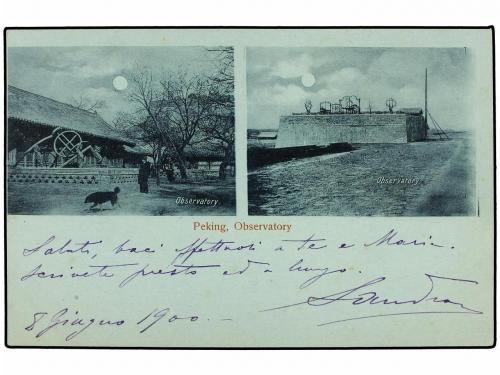 Observatory
Observatory
Peking, Observatory
Saluti, baci affettuosi a te e Maria.
Scrivete presto ed a lungo.
Sandra
8 Giugno 1900.